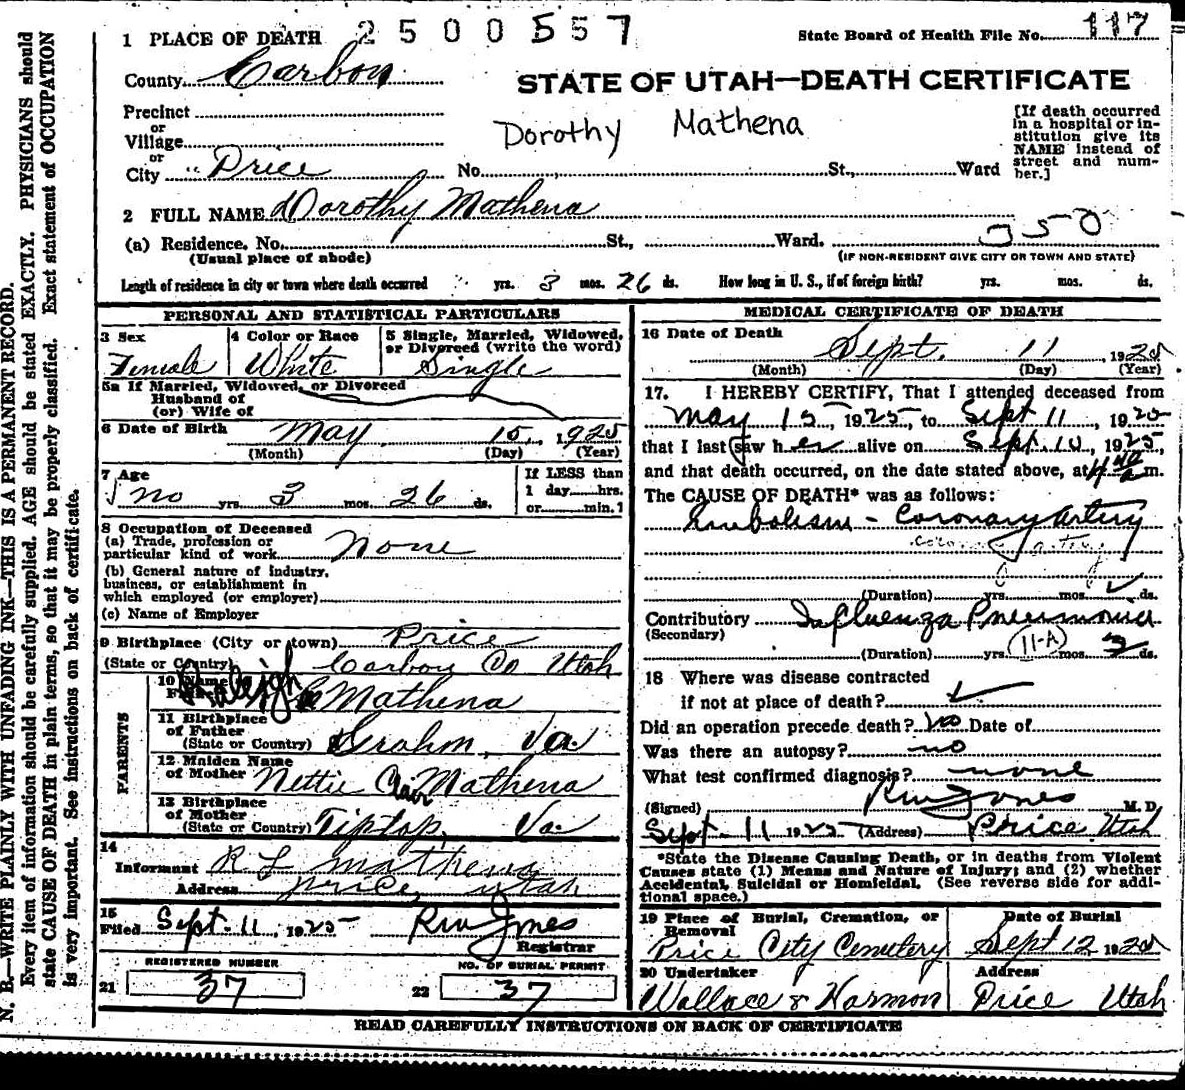 2500557
State Board of Health File No. 117
1 PLACE OF DEATH
County Carbon
STATE OF UTAH—DEATH CERTIFICATE
Precinct
or
Village
or
City " Price No. St., Ward
Dorothy Mathena
[If death occurred
in a hospital or in-
stitution give its
NAME instead of
street and num-
ber.]
2 FULL NAME Dorothy Mathena
(a) Residence. No. St., Ward. 350
(Usual place of abode)
(IF NON-RESIDENT GIVE CITY OR TOWN AND STATE)
Length of residence in city or town where death occurred yrs. 3 mos. 26 ds. How long in U. S., if of foreign birth? yrs. mos. ds.
PERSONAL AND STATISTICAL PARTICULARS
3 Sex
Female
4 Color or Race
White
5 Single, Married, Widowed,
or Divorced (write the word)
Single
5a If Married, Widowed, or Divorced
Husband of
(or) Wife of
6 Date of Birth May 15, 1925
(Month) (Day) (Year)
7 Age
no yrs 3 mos. 26 ds.
If LESS than
1 day hrs.
or min.?
8 Occupation of Deceased
(a) Trade, profession or
particular kind of work None
(b) General nature of industry,
business, or establishment in
which employed (or employer)
(c) Name of Employer
9 Birthplace (City or town) Price
(State or Country) Carbon Co Utah
PARENTS
10 Name
Raleigh Mathena
11 Birthplace
of Father
(State or Country) Grahm, Va.
12 Maiden Name
of Mother Nettie Clair Mathena
13 Birthplace
of Mother
(State or Country) Tiptop, Va.
14
Informant R L Mathena
Address Price, Utah
15
Filed Sept. 11, 1925
Registrar
REGISTERED NUMBER
21 37
NO. OF BURIAL PERMIT
22 37
MEDICAL CERTIFICATE OF DEATH
16 Date of Death
Sept. 11, 1925
(Month) (Day) (Year)
17. I HEREBY CERTIFY, That I attended deceased from
May 15, 1925, to Sept 11, 1925
that I last saw her alive on Sept. 10, 1925,
and that death occurred, on the date stated above, at 4 40 a m.
The CAUSE OF DEATH* was as follows:
Embolism - Coronary Artery
coronary artery
(Duration) yrs. mos. ds.
Contributory Influenza Pneumonia
(Secondary)
11-A
(Duration) yrs. mos. 3 ds.
18 Where was disease contracted
if not at place of death?
Did an operation precede death? no Date of
Was there an autopsy? no
What test confirmed diagnosis? none
(Signed) Jones M. D.
Sept-11 1925 (Address) Price Utah
*State the Disease Causing Death, or in deaths from Violent
Causes state (1) Means and Nature of Injury; and (2) whether
Accidental, Suicidal or Homicidal. (See reverse side for addi-
tional space.)
19 Place of Burial, Cremation, or
Removal
Price City Cemetery
Date of Burial
Sept 12 1925
20 Undertaker
Wallace & Harmon
Address
Price Utah
READ CAREFULLY INSTRUCTIONS ON BACK OF CERTIFICATE
N. B.—WRITE PLAINLY WITH UNFADING INK—THIS IS A PERMANENT RECORD.
Every item of information should be carefully supplied. AGE should be stated EXACTLY. PHYSICIANS should
state CAUSE OF DEATH in plain terms, so that it may be properly classified. Exact statement of OCCUPATION
is very important. See instructions on back of certificate.